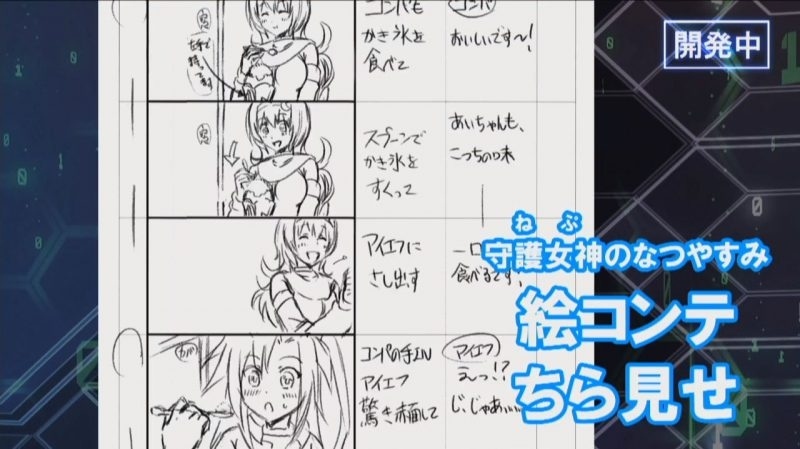 コンパも
かき氷を
食べて
コンパ
おいしいです〜!
スプーンで
かき氷を
すくって
あいちゃんも、
こっちの味
アイエフに
さし出す
一口
食べるです、
コンパの手IN
アイエフ
驚き赤面して
アイエフ
えっ!?
じ、じゃあ…
開発中
ねぷ
守護女神のなつやすみ
絵コンテ
ちら見せ